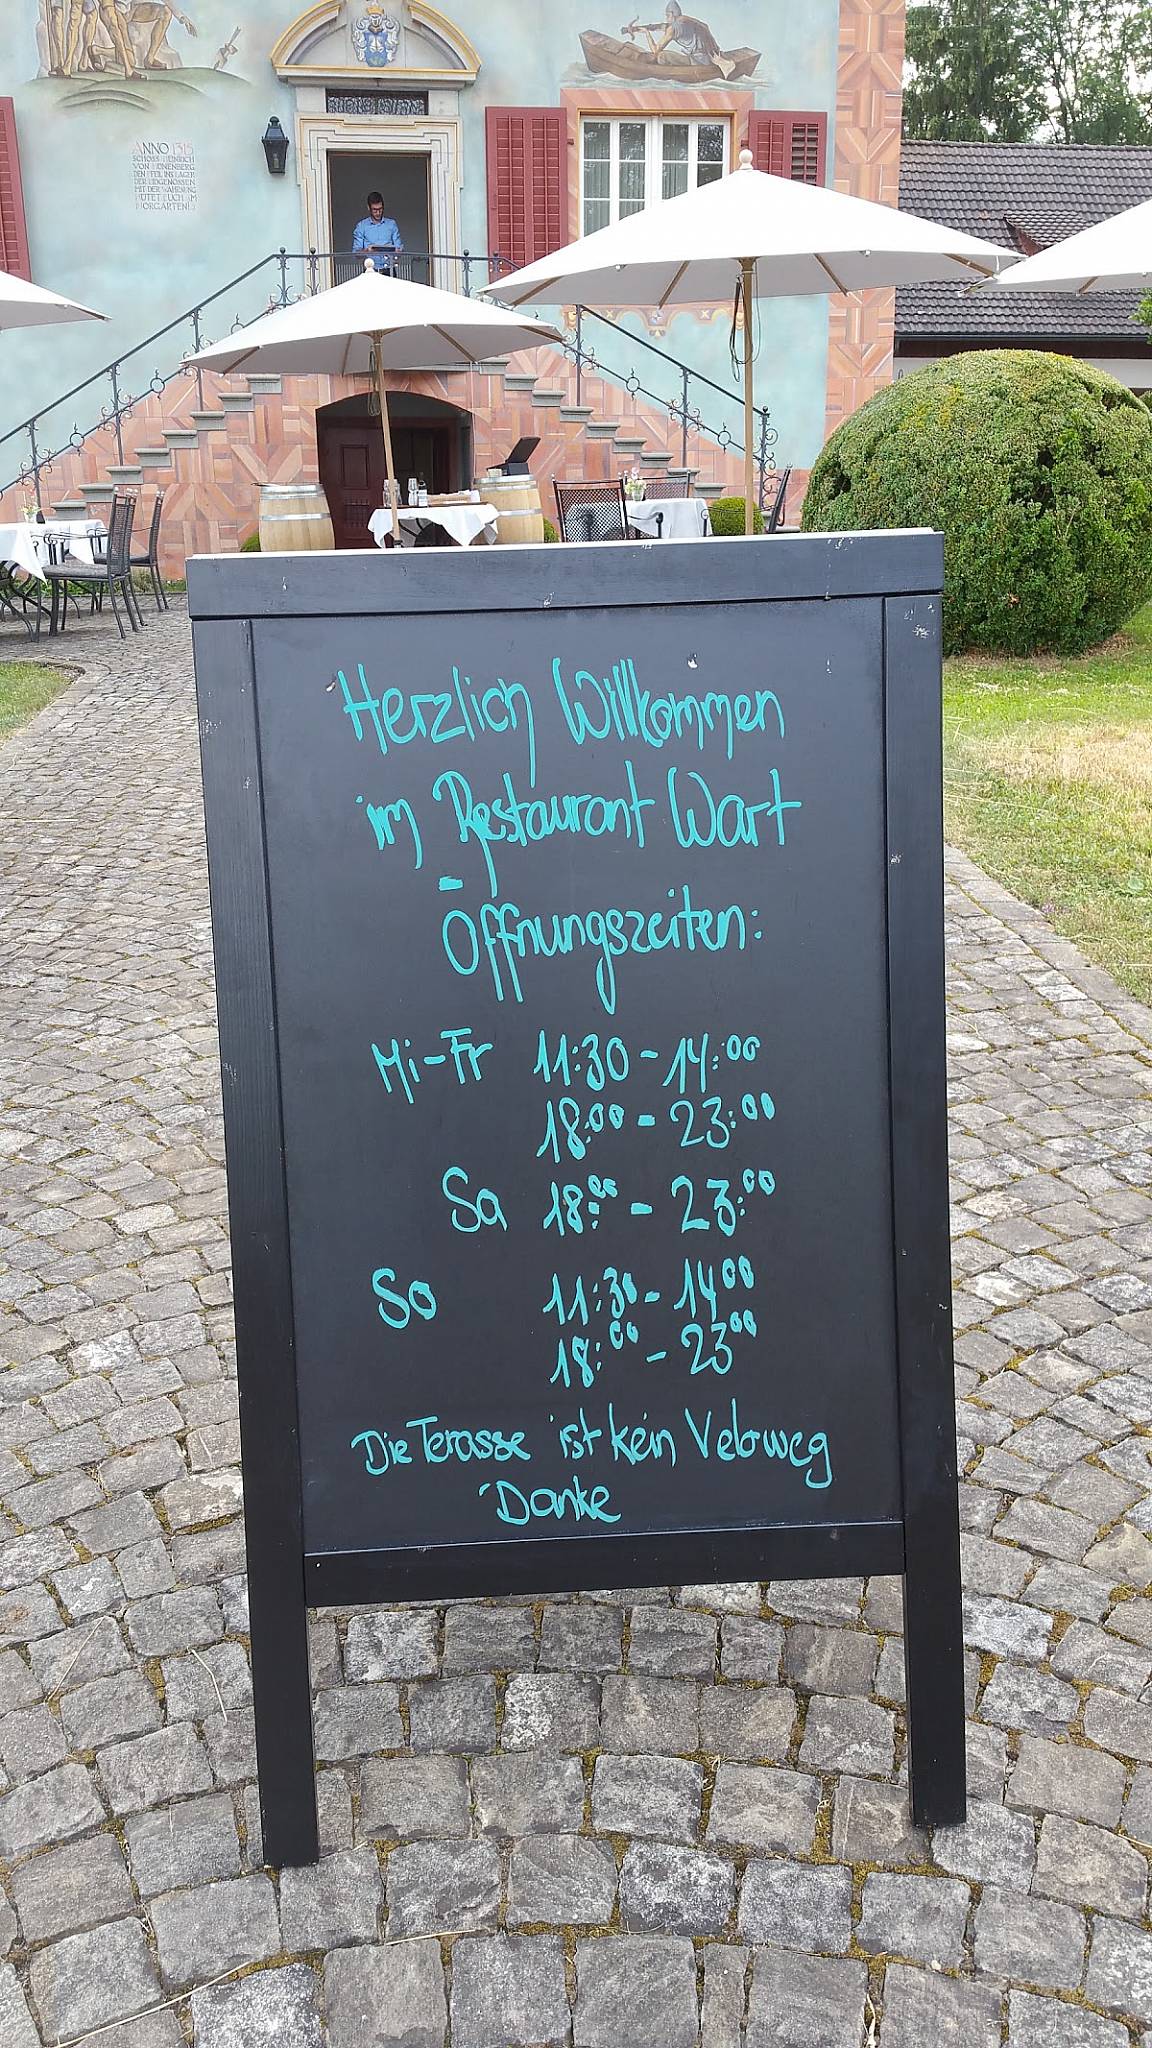 ANNO 1315
SCHOSS HEINRICH
VON HÜNENBERG
DEN PFEIL INS LAGER
DER EIDGENOSSEN
MIT DER WARNUNG
HÜTET EUCH AM
MORGARTEN
Herzlich Willkommen
im Restaurant Wart
Öffnungszeiten:
Mi-Fr 11:30 - 14:00
18:00 - 23:00
Sa 18:00 - 23:00
So 11:30 - 14 00
18:00 - 23 00
Die Terasse ist kein Veloweg
Danke